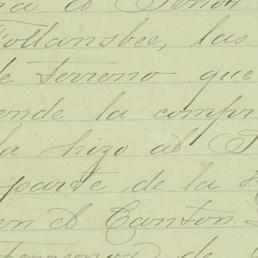 al Señor
Follansbee, las
de terreno que
ende la compr
la hizo al
parte de la
en el Canton
de